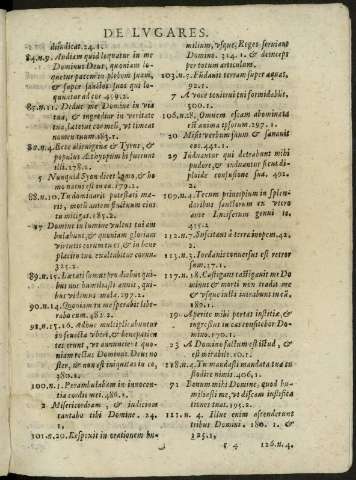 DE LVGARES.
diiudicat.24.1.
84.n.9. Audiam quid loquatur in me
Dominus Deus, quoniam lo-
quetur pacem in plebem suam,
& super sanctos suos qui
ad cor 409.2.
85.n.11. Deduc me Domine in via
tua, & ingrediar in veritate
tua, lætetur cor meū, vt timeat
nomen tuum.185.1.
86.n.4. Ecce alienigenæ & Tyrus, &
populus Æthyopum hi fuerunt
illi.178.1.
5 Nunquid Syon dicet homo, & ho
mo natus est in ea.179.1.
88.n.10. Tu dominaris potestati ma-
ris, motū autem fluctuum eius
tu mitigas.185.2.
17 Domine in lumine vultus tui am
bulabunt, & quoniam gloria
virtutis eorum tu es, & in bene
placito tuo exaltabitur cornu
325.2.
89.n.15. Lætati sumus pro diebus qui
bus nos humiliasti annis, qui
bus vidimus mala.197.2.
90.n.14. Quoniam in me sperabit libe-
rabo eum.481.2.
91.n.15.16. Adhuc multiplicabuntur
in senecta vberi, & bene patien
tes erunt, vt annuncient quo
niam rectus Dominus Deus no
ster, & non est iniquitas in eo.
481.2.
100.n.1. Perambulabam in innocen
tia cordis mei.486.1.
2 Misericordiam, & iudicium
cantabo tibi Domine. 24.
1.
101.n.20. Respexit in orationem hu-
milium, vsque, Reges seruiant
Domino. 214.1. & deinceps
per totum articulum.
103.n.5. Fundauit terram super aquas,
92.1.
7 A voce tonitrui tui formidabūt,
300.1.
106.n.18. Omnem escam abominata
est anima ipsorum.297.1.
20 Misit verbum suum & sanauit
eos.442.1.
29 Induantur qui detrahunt mihi
pudore, & induantur sicut di-
ploide confusione sua. 492.
2.
109.n.3. Tecum principium in splen-
doribus sanctorum ex vtero
ante Luciferum genui te,
455.2.
112.n.7. Suscitans à terra inopem.42.
2.
113.n.3. Iordanis conuersus est retror
sum.17.1.
117.n.18. Castigans castigauit me Do
minus & morti non tradidit me
189.1.
19 Aperite mihi portas iustitiæ, &
ingressus in eas confitebor Do-
mino.170.1.
23 A Domino factum est istud, &
est mirabile.101.1.
118.n.4. Tu mandasti mandata tua cu
stodire nimis.406.1.
71 Bonum mihi Domine, quod hu-
miliasti me, vt discam iustifica
tiones tuas.195.2.
121.n.4. Illuc enim ascenderunt
tribus Domini. 180.1. &
325.1,
¶ 4
126.n.4.